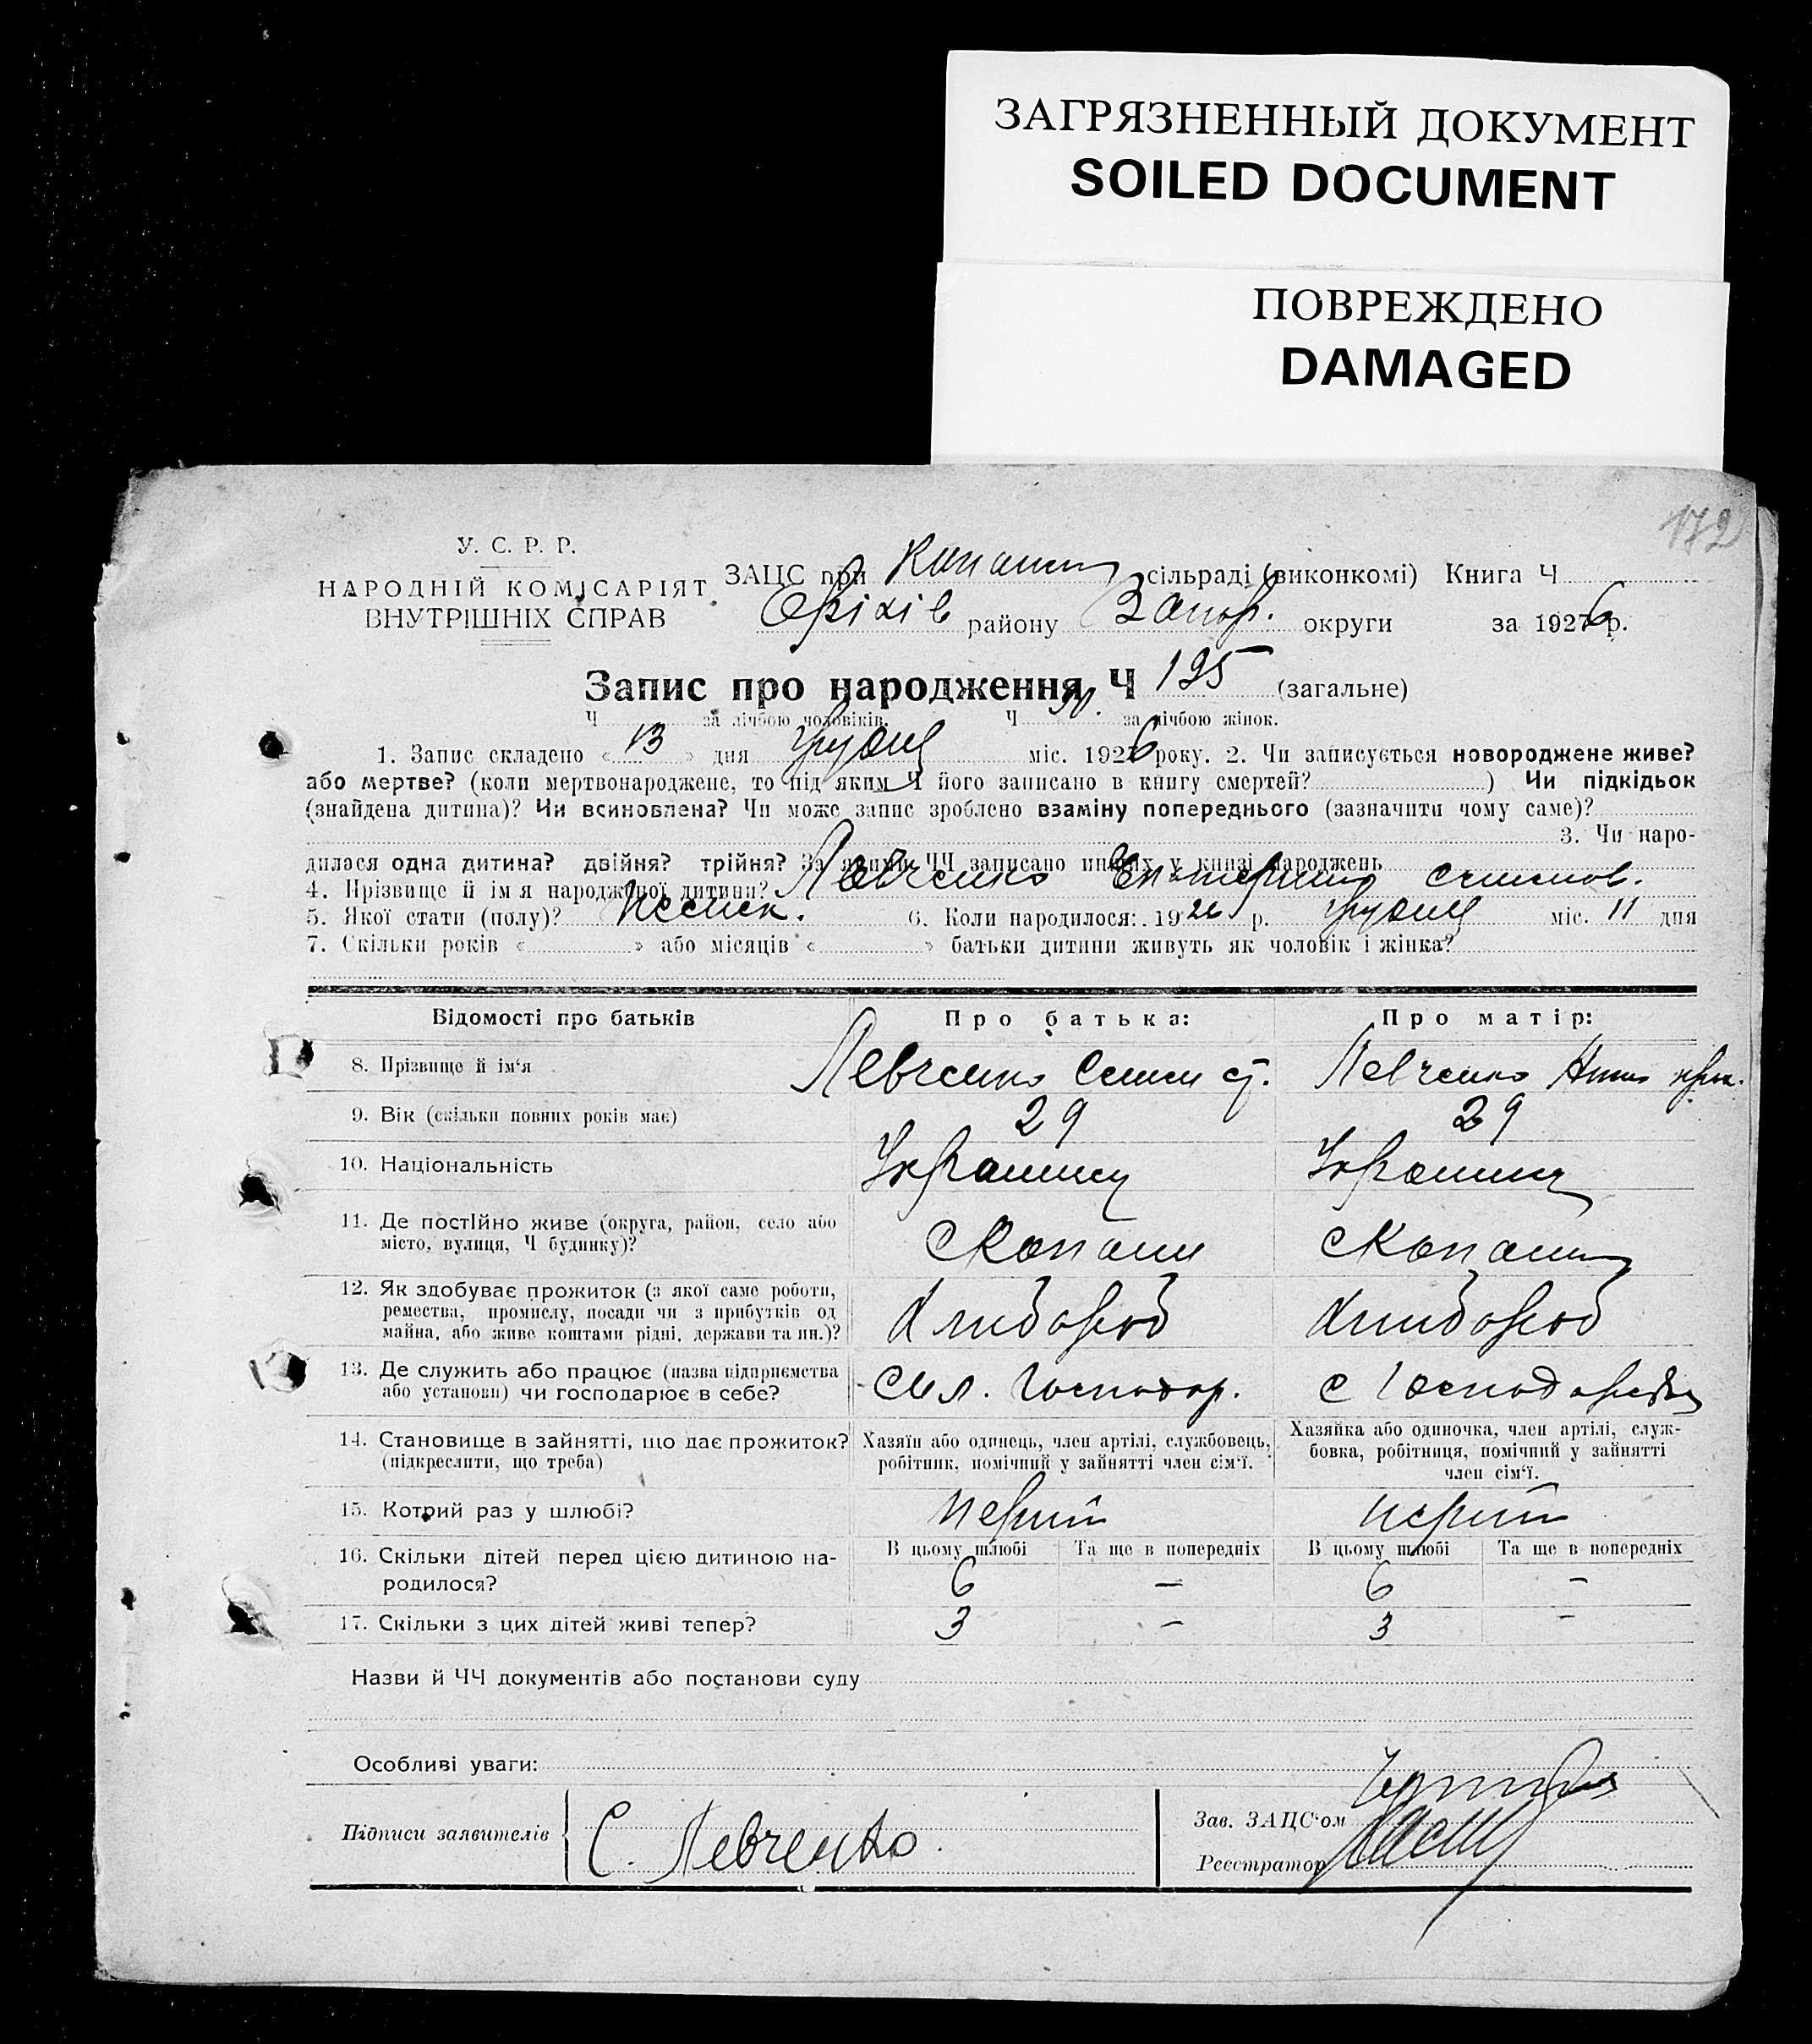 ЗАГРЯЗНЕННЫЙ ДОКУМЕНТ
SOILED DOCUMENT
ПОВРЕЖДЕНО
DAMAGED
172
У. С. Р. Р.
НАРОДНІЙ КОМІСАРІЯТ
ВНУТРІШНІХ СПРАВ
ЗАЦС при Копани сільраді (виконкомі) Книга Ч
Оріхів району Запор. округи за 1926 р.
Запис про народження Ч 195 (загальне)
Ч за лічбою чоловіків. Ч 90. за лічбою жінок.
1. Запис складено « 13 » дня Грудня міс. 1926 року. 2. Чи записується новороджене живе?
або мертве? (коли мертвонароджене, то під яким Ч його записано в книгу смертей? ) Чи підкідьок
(знайдена дитина)? Чи всиновлена? Чи може запис зроблено взаміну попереднього (зазначити чому саме)?
3. Чи наро-
дилася одна дитина? двійня? трійня? За якими ЧЧ записано инших у книзі народжень
4. Прізвище й ім'я народженої дитини? Левченко Екатерина Семенов.
5. Якої стати (полу)? Женск. 6. Коли народилося: 1926 р. Грудня міс. 11 дня
7. Скільки років « » або місяців « » батьки дитини живуть як чоловік і жінка?
Відомості про батьків Про батька: Про матір:
8. Прізвище й ім'я Левченко Семен Левченко Анна
9. Вік (скільки повних років має) 29 29
10. Національність Украинец Украинец
11. Де постійно живе (округа, район, село або
місто, вулиця, Ч будинку)? с Копани с Копани
12. Як здобуває прожиток (з якої саме роботи,
ремества, промислу, посади чи з прибутків од
майна, або живе коштами рідні, держави та ин.)? Хлибороб Хлибороб
13. Де служить або працює (назва підприємства
або установи) чи господарює в себе? Сил. Господар. с Господарства
14. Становище в зайнятті, що дає прожиток?
(підкреслити, що треба)
Хазяїн або одинець, член артілі, службовець,
робітник, помічний у зайнятті член сім'ї.
Хазяйка або одиночка, член артілі, служ-
бовка, робітниця, помічний у зайнятті
член сім'ї.
15. Котрий раз у шлюбі? перший перший
16. Скільки дітей перед цією дитиною на-
родилося?
В цьому шлюбі Та ще в попередніх В цьому шлюбі Та ще в попередніх
6 — 6 —
17. Скільки з цих дітей живі тепер? 3 — 3 —
Назви й ЧЧ документів або постанови суду
Особливі уваги:
Підписи заявителів С. Левченко.
Зав. ЗАЦС'ом
Реєстратор